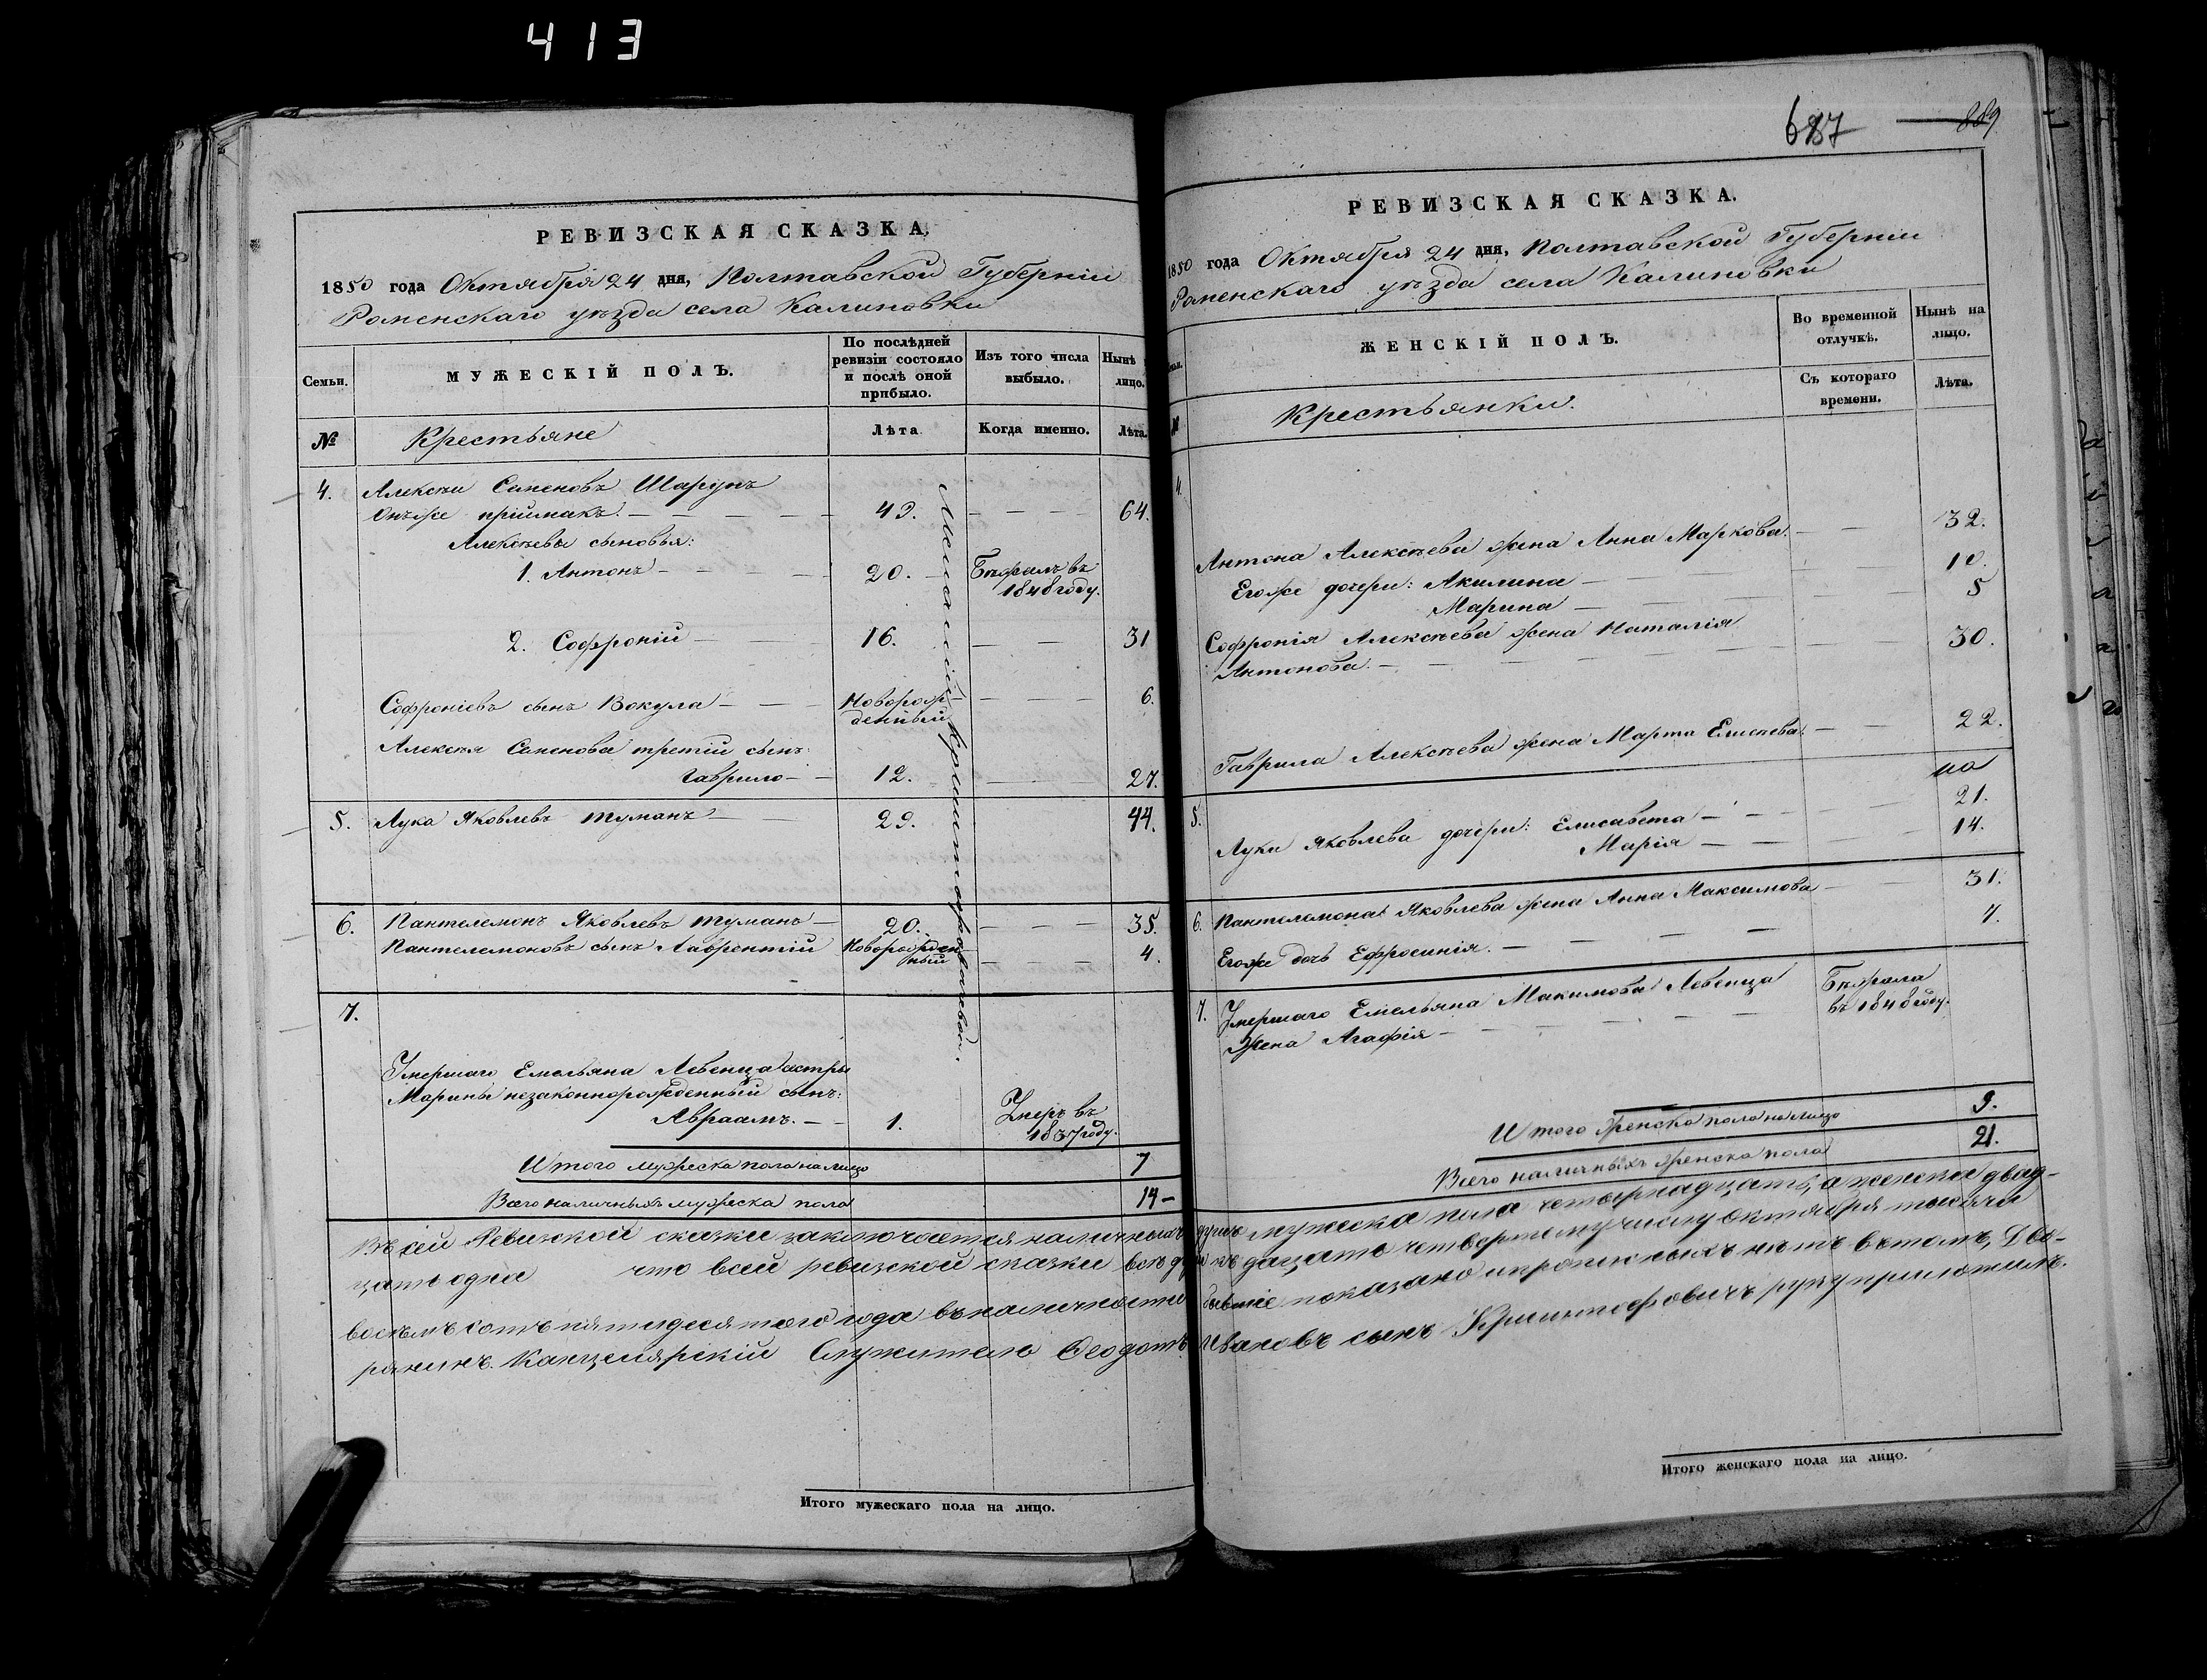 413
РЕВИЗСКАЯ СКАЗКА.
1850 года Октября 24 дня, Полтавской Губерніи
Роменскаго уѣзда села Калиновки
Семьи.
МУЖЕСКІЙ ПОЛЪ.
По послѣдней
ревизіи состояло
и послѣ оной
прибыло.
Изъ того числа
выбыло.
Нынѣ
лицо.
№
Крестьяне
Лѣта
Когда именно.
Лѣта.
4. Алексѣй Семеновъ Шарунъ
Онъ же пріймакъ. 49. 64.
Алексѣевы сыновья:
1. Антонъ 20. Бѣжалъ въ
1848 году.
2. Софроній 16. 31
Софроніевъ сынъ Вокула Новорож-
денный 6.
Алексѣя Семенова третій сынъ:
Гаврило 12. 27.
5. Лука Яковлевъ Туманъ 29. 44.
6. Пантелемонъ Яковлевъ Туманъ 20. 35.
Пантелемоновъ сынъ Лаврентій Новорожден-
ный 4.
7.
Умершаго Емельяна Левенца сестры
Марины незаконнорожденный сынъ:
Авраамъ. 1. Умеръ въ
1837 году.
Итого мужеска пола на лицо 7
Всего наличныхъ мужеска пола 14
687 889
РЕВИЗСКАЯ СКАЗКА.
1850 года Октября 24 дня, Полтавской Губерніи
Роменскаго уѣзда села Калиновки
ЖЕНСКІЙ ПОЛЪ.
Во временной
отлучкѣ.
Нынѣ на
лицо.
Съ котораго
времени.
Лѣта.
№
Крестьянки.
4.
Антона Алексѣева жена Анна Маркова. 32.
Его же дочери: Акилина 10.
Марина 5
Софронія Алексѣева жена Наталія
Антонова. 30.
Гаврила Алексѣева жена Марта Елисѣева. 22.
5.
Луки Яковлева дочери: Елисавета 21.
Марія 14.
6. Пантелемона Яковлева жена Анна Максимова 31.
Его же дочь Ефросинія. 7.
7. Умершаго Емельяна Макимова Левенца Бѣжала
жена Агафія въ 1848 году.
Итого женска пола на лицо 9.
Всего наличныхъ женска пола 21.
Въ сей Ревизской сказки заключается наличныхъ душъ мужеска пола четырнадцать, а женска двад-
цать одна что всей ревизской сказки всѣ къ дацато четвертому числу октября тысяча
восѣмъ сотъ пятидесятого года въ наличности бывшіе показано и прописныхъ нѣтъ въ томъ, Дво-
рянинъ. Канцелярскій Служитель Феодотъ Ивановъ сынъ Криштофовичъ руку приложилъ.
Итого мужескаго пола на лицо.
Итого женскаго пола на лицо.